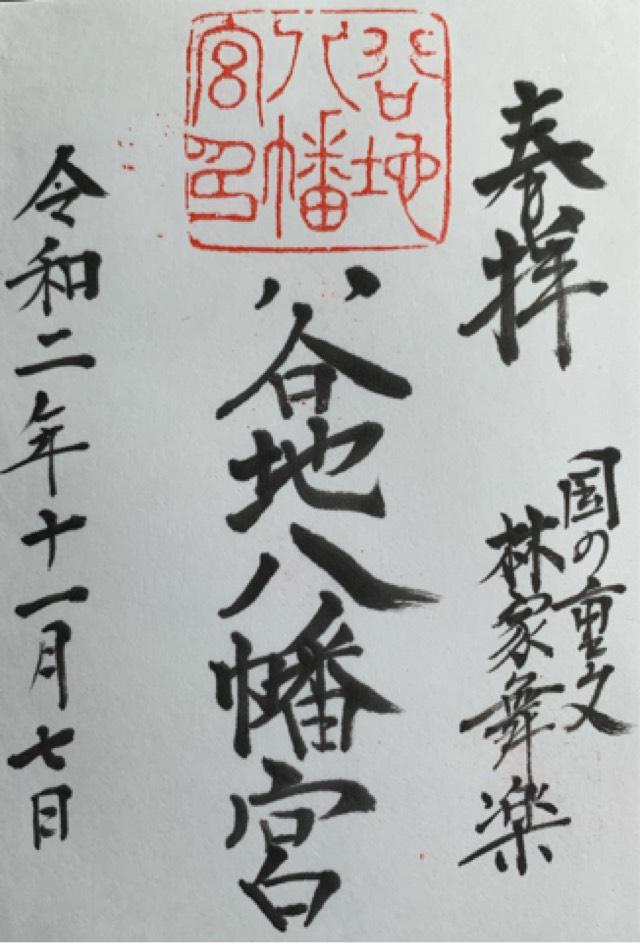 奉拝
国の重文
林家舞楽
谷地
八幡
宮印
谷地八幡宮
令和二年十一月七日